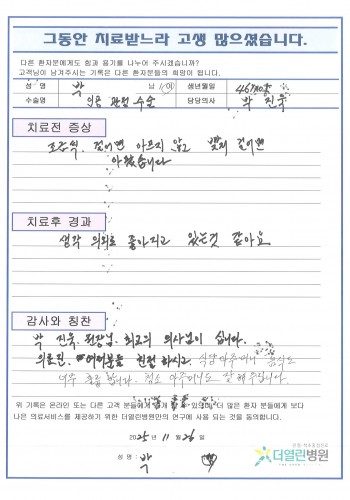 그동안 치료받느라 고생 많으셨습니다.
다른 환자분에게도 힘과 용기를 나누어 주시겠습니까?
고객님이 남겨주시는 기록은 다른 환자분들의 희망이 됩니다.
성 명 박 남 여 생년월일
수술명 의료 관절 수술 담당의사 박 진욱
치료전 증상
조금씩 걸어면 아프지 않고 빨리 걸어면
아팠습니다
치료후 경과
생각 의외로 좋아지고 있는것 같아요
감사와 칭찬
박 진욱 원장님. 최고의 의사님이 십니다.
의료진. 여러분들 친절 하시고 식당 아주머니 음식도
너무 좋습니다. 청소 아주머니도 잘 해 주십니다.
위 기록은 온라인 또는 다른 환자 더 많은 환자 분들에게 보다
나은 의료서비스를 제공하기 위한 더열린병원만의 연구에 사용 되는 것을 동의합니다.
2025년 11월 26일
성명 : 박
더열린병원